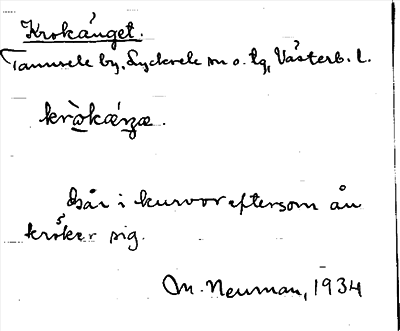 Krokånget.
Tannsele by, Lycksele sn o. tg, Västerb. l.
kròkǽŋæ.
Går i kurvor eftersom ån
kröker sig.
M. Neuman, 1934